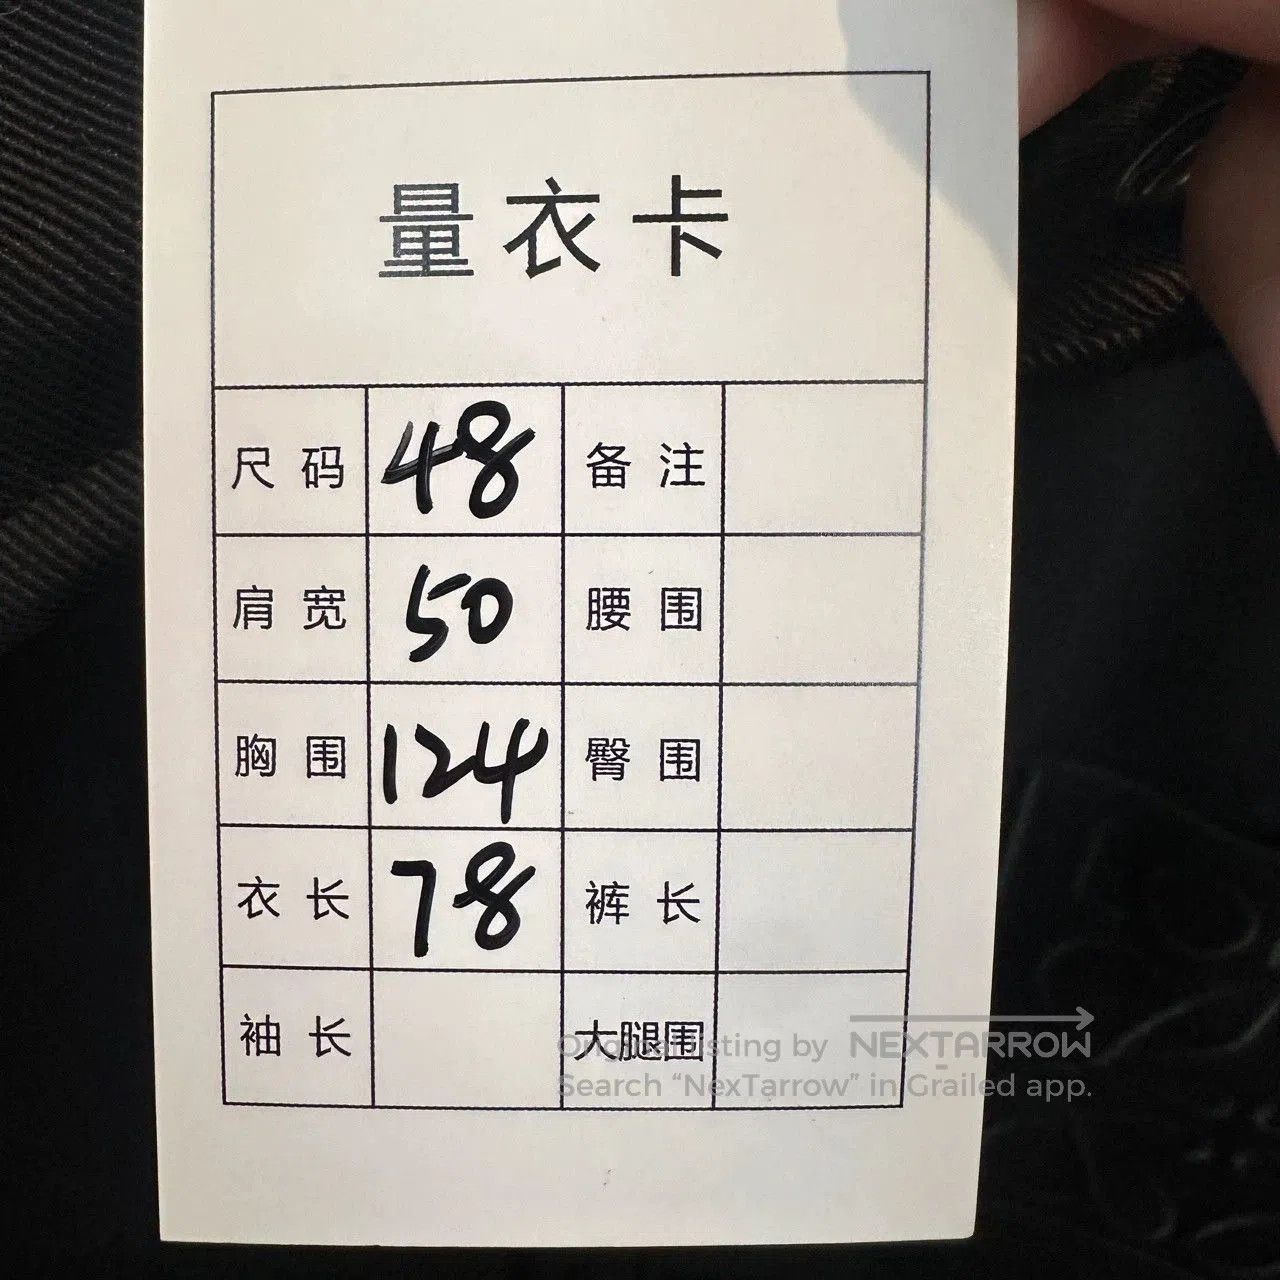 量衣卡
尺码 48 备注
肩宽 50 腰围
胸围 124 臀围
衣长 78 裤长
袖长 大腿围
Original listing by NEXTARROW
Search “NexTarrow” in Grailed app.